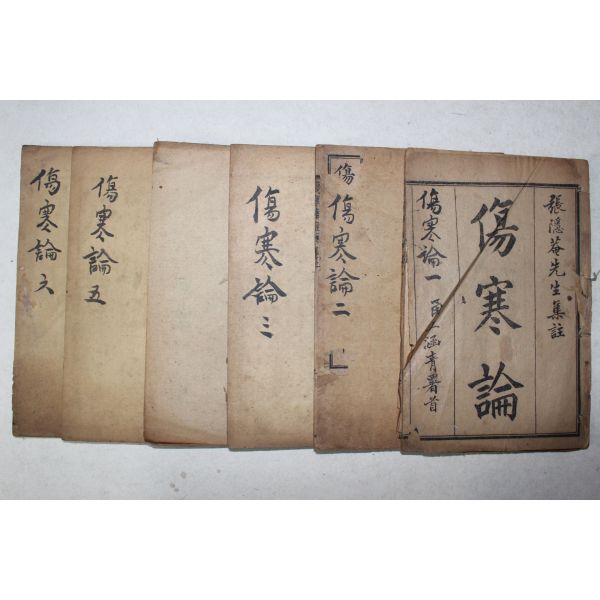 張隱菴先生集註
傷寒論
傷寒論一
涵青署首
傷
傷寒論二
傷寒論三
傷寒論五
傷寒論六